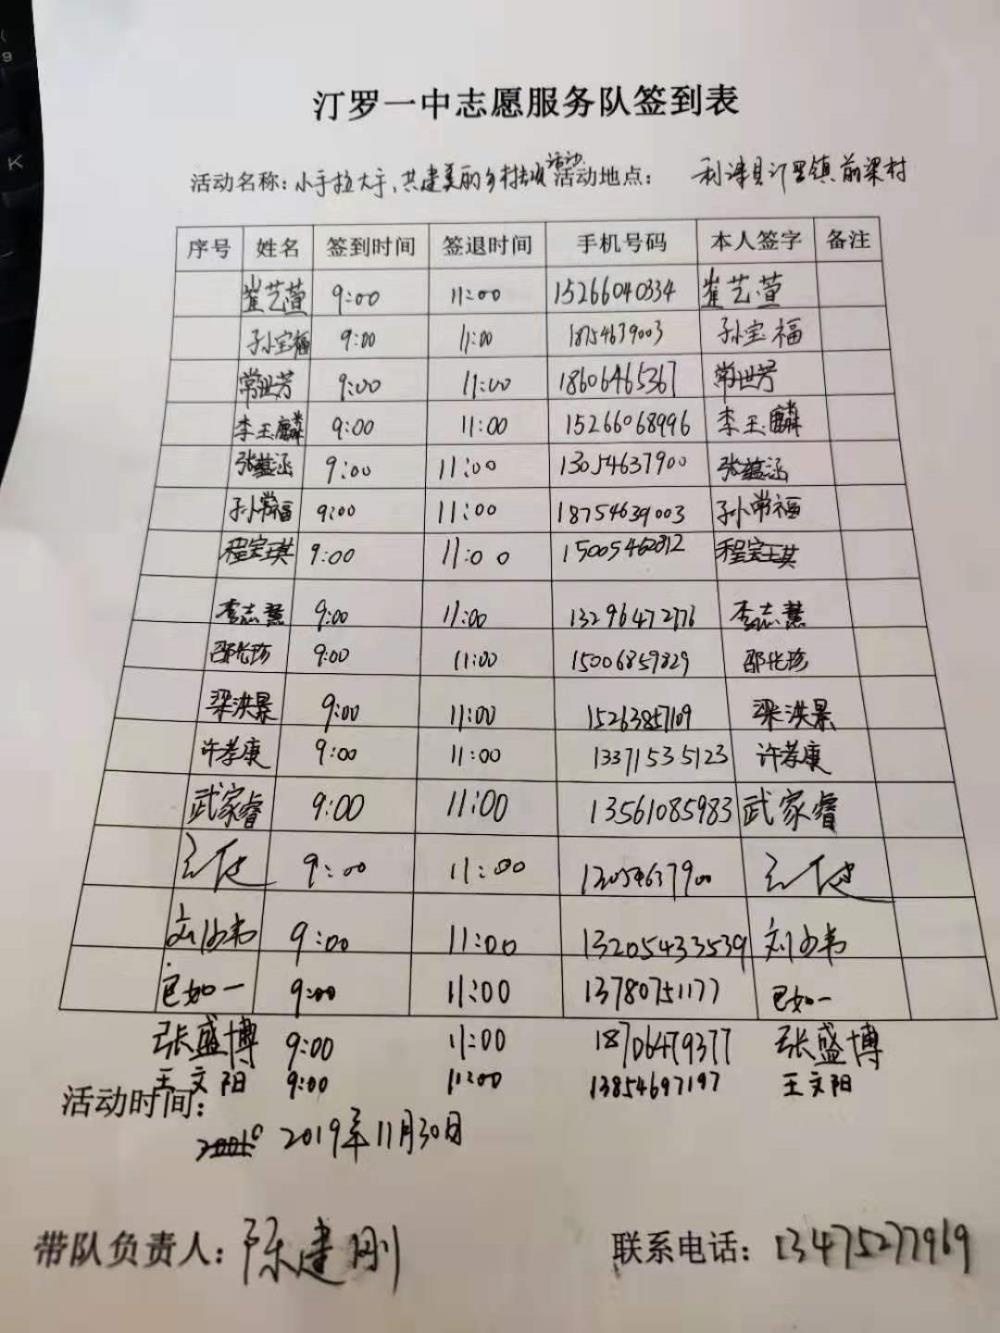 汀罗一中志愿服务队签到表
活动名称：小手拉大手，共建美丽乡村 活动 活动地点： 利津县汀罗镇前梁村
序号 姓名 签到时间 签退时间 手机号码 本人签字 备注
崔艺萱 9:00 11:00 15266040334 崔艺萱
孙宝福 9:00 11:00 18754639003 孙宝福
常世芳 9:00 11:00 18606465367 常世芳
李玉麟 9:00 11:00 15266068996 李玉麟
张蕴涵 9:00 11:00 13054637900 张蕴涵
孙常福 9:00 11:00 18754639003 孙常福
程宝琪 9:00 11:00 15005462812 程宝琪
李志慧 9:00 11:00 13296472776 李志慧
邵长珍 9:00 11:00 15006859829 邵长珍
梁洪景 9:00 11:00 15263857109 梁洪景
许孝康 9:00 11:00 13371535123 许孝康
武家睿 9:00 11:00 13561085983 武家睿
9:00 11:00 13054637900
9:00 11:00 13205433539 刘
如一 9:00 11:00 13780751177 如一
张盛博 9:00 11:00 18706479377 张盛博
王文阳 9:00 11:00 13854697197 王文阳
活动时间：
2019年11月30日
带队负责人：陈建刚 联系电话：13475277969